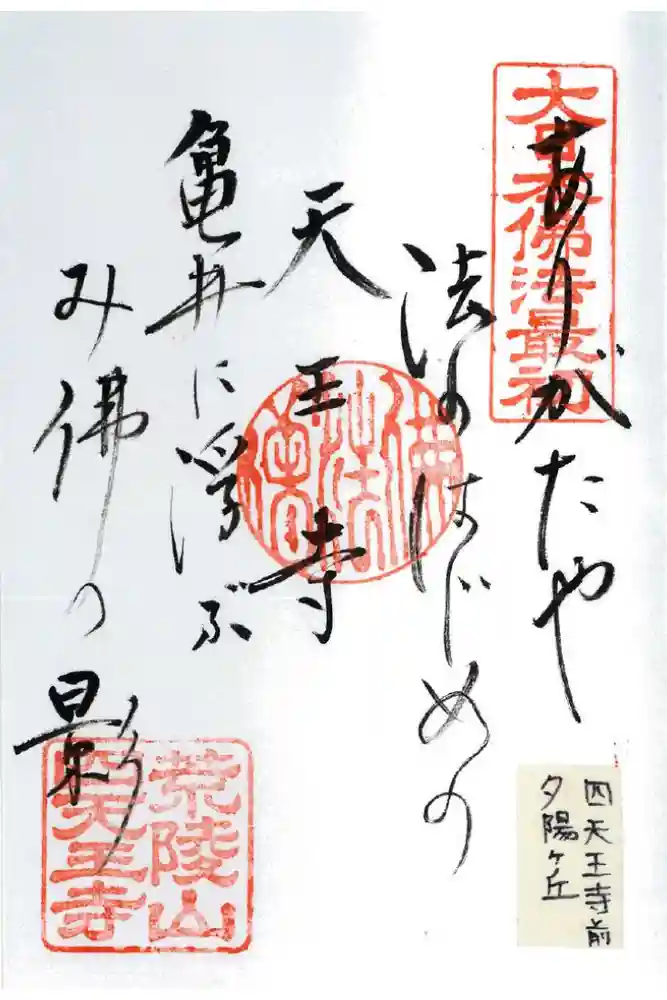 大日本佛法最初
ありがたや
法のはじめの
天王寺
亀井に浮ぶ
み佛の影
佛法僧
荒陵山
四天王寺
四天王寺前
夕陽ヶ丘